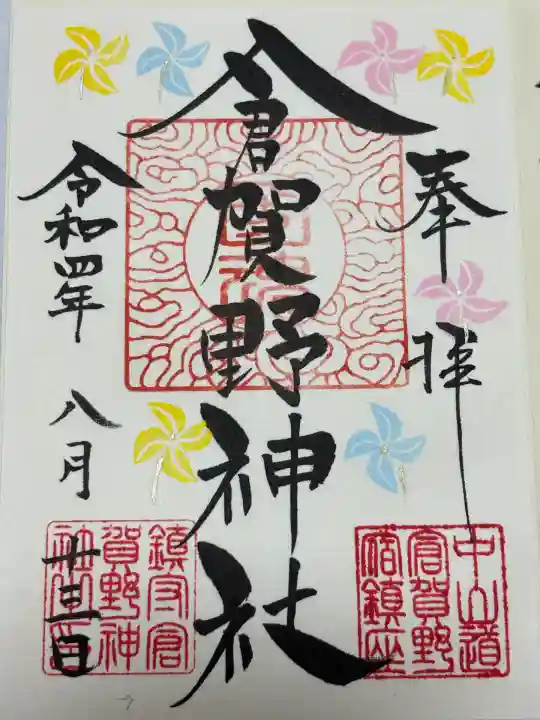 奉拝
倉賀野神社
令和四年
八月
廿三日
中山道
倉賀野
宿鎮座
鎮守倉
賀野神